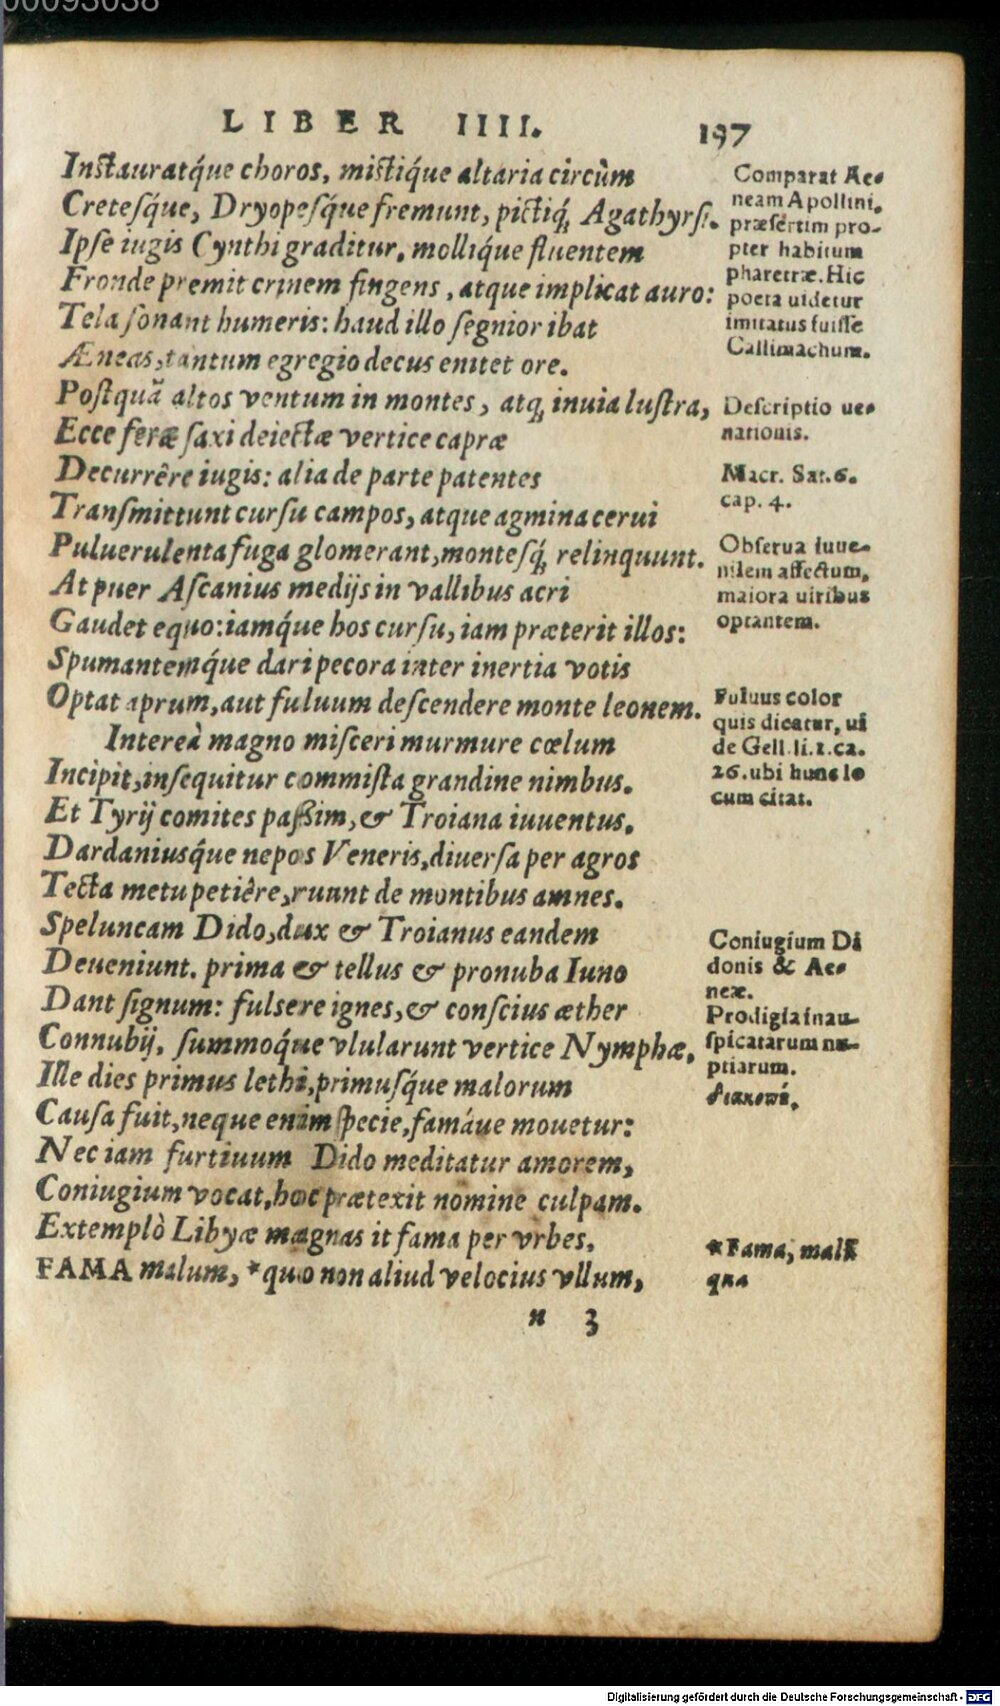 00093038
LIBER IIII. 197
Instauratq́ue choros, mistiq́ue altaria circùm
Cretesq́ue, Dryopesq́ue fremunt, pictiq́; Agathyrsi.
Ipse iugis Cynthi graditur, molliq́ue fluentem
Fronde premit crinem fingens, atque implicat auro:
Tela sonant humeris: haud illo segnior ibat
Æneas, tantum egregio decus enitet ore.
Postquã altos ventum in montes, atq; inuia lustra,
Ecce feræ saxi deiectæ vertice capræ
Decurrêre iugis: alia de parte patentes
Transmittunt cursu campos, atque agmina cerui
Puluerulenta fuga glomerant, montesq́; relinquunt.
At puer Ascanius medijs in vallibus acri
Gaudet equo: iamq́ue hos cursu, iam præterit illos:
Spumantemq́ue dari pecora inter inertia votis
Optat aprum, aut fuluum descendere monte leonem.
Intereà magno misceri murmure cœlum
Incipit, insequitur commista grandine nimbus.
Et Tyrij comites passim, & Troiana iuuentus,
Dardaniusq́ue nepos Veneris, diuersa per agros
Tecta metu petiêre, ruunt de montibus amnes.
Speluncam Dido, dux & Troianus eandem
Deueniunt. prima & tellus & pronuba Iuno
Dant signum: fulsere ignes, & conscius æther
Connubij, summoq́ue vlularunt vertice Nymphæ.
Ille dies primus lethi, primusq́ue malorum
Causa fuit, neque enim specie, famáue mouetur:
Nec iam furtiuum Dido meditatur amorem,
Coniugium vocat, hoc prætexit nomine culpam.
Extemplò Libyæ magnas it fama per vrbes,
FAMA malum, *quo non aliud velocius vllum,
n 3
Comparat Ae-
neam Apollini,
præsertim pro-
pter habitum
pharetræ. Hic
poeta uidetur
imitatus fuisse
Callimachum.
Descriptio ue-
nationis.
Macr. Sat. 6.
cap. 4.
Obserua iuue-
nilem affectum,
maiora uiribus
optantem.
Fuluus color
quis dicatur, ui
de Gell. li. 2. ca.
26. ubi hunc lo
cum citat.
Coniugium Di
donis & Ae-
neæ.
Prodigia inau-
spicatarum nu-
ptiarum.
*Fama, mali
qua
Digitalisierung gefördert durch die Deutsche Forschungsgemeinschaft - DFG